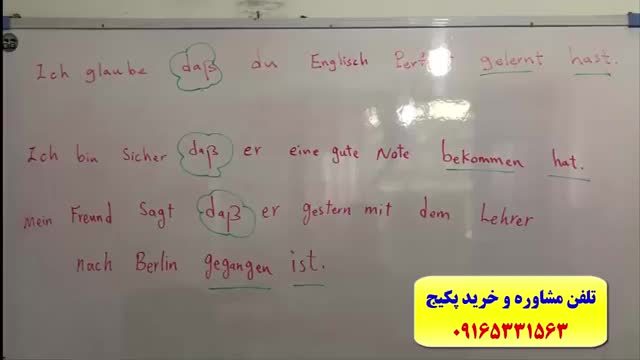 Ich glaube daß du Englisch Perfekt gelernt hast.
Ich bin Sicher daß er eine gute Note bekommen hat.
Mein Freund Sagt daß er gestern mit dem Lehrer
nach Berlin gegangen ist.
تلفن مشاوره و خرید پکیج
۰۹۱۶۵۳۳۱۵۶۳